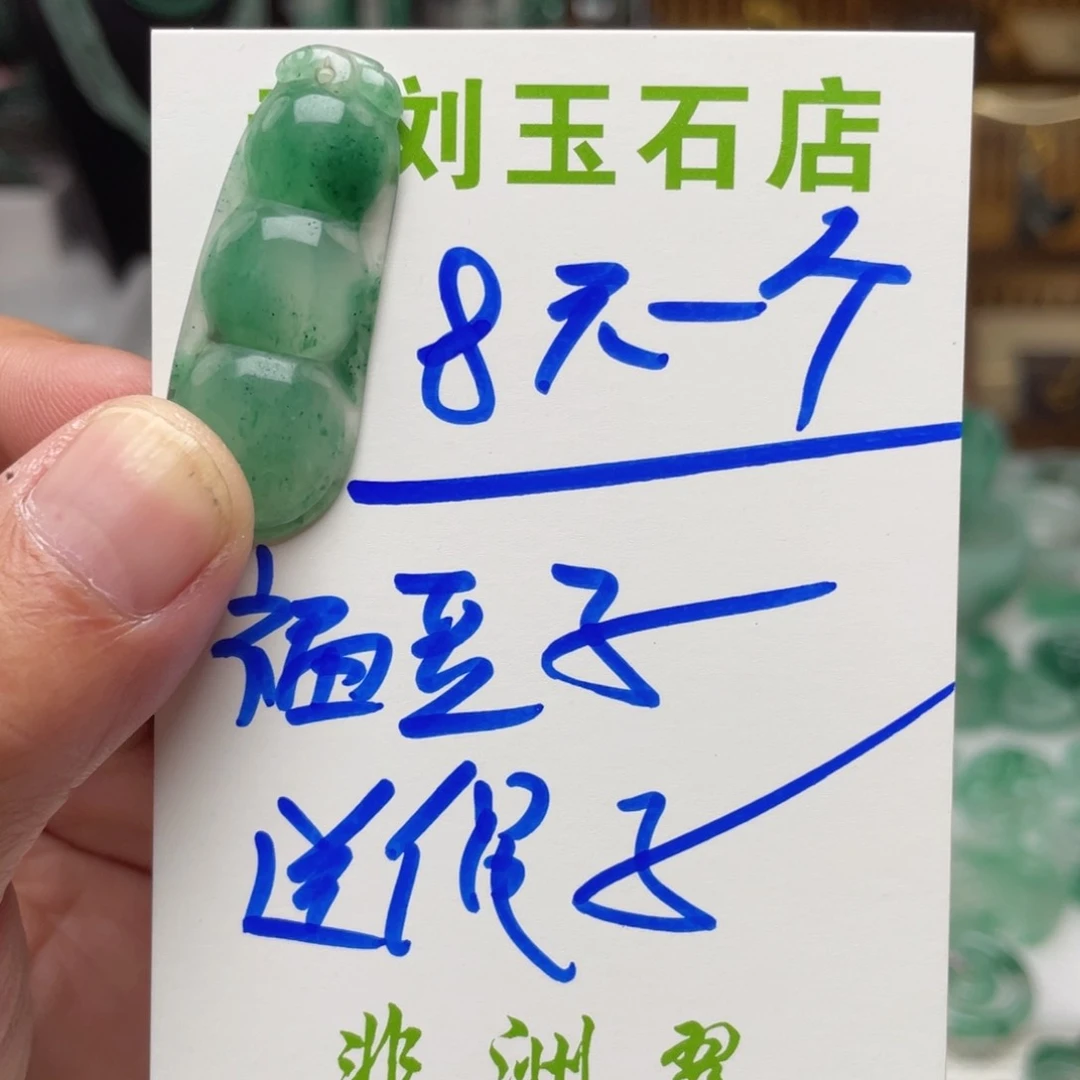 刘玉石店
8元一个
福豆子
送绳子
非洲翠